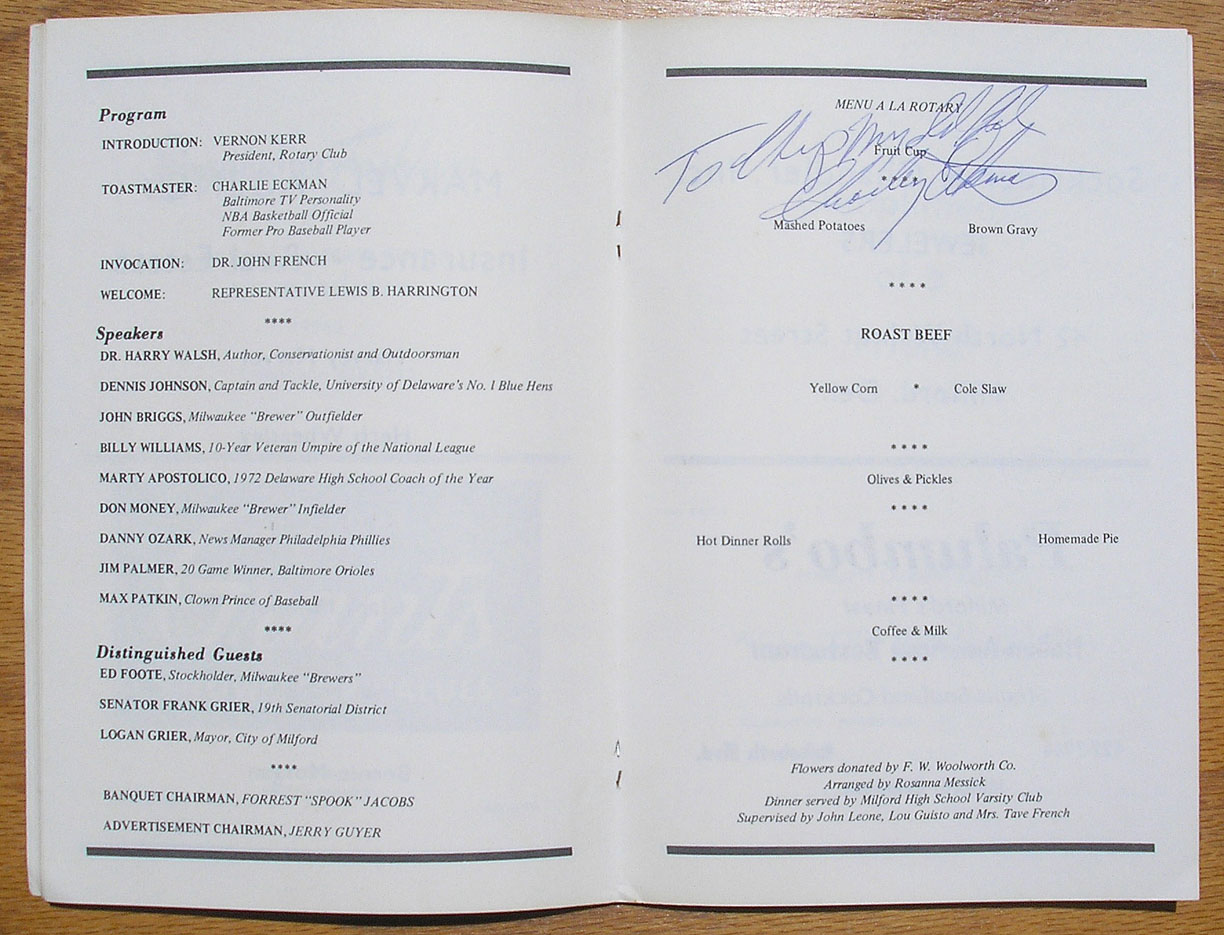 Program
INTRODUCTION: VERNON KERR
President, Rotary Club
TOASTMASTER: CHARLIE ECKMAN
Baltimore TV Personality
NBA Basketball Official
Former Pro Baseball Player
INVOCATION: DR. JOHN FRENCH
WELCOME: REPRESENTATIVE LEWIS B. HARRINGTON
****
Speakers
DR. HARRY WALSH, Author, Conservationist and Outdoorsman
DENNIS JOHNSON, Captain and Tackle, University of Delaware's No. 1 Blue Hens
JOHN BRIGGS, Milwaukee "Brewer" Outfielder
BILLY WILLIAMS, 10-Year Veteran Umpire of the National League
MARTY APOSTOLICO, 1972 Delaware High School Coach of the Year
DON MONEY, Milwaukee "Brewer" Infielder
DANNY OZARK, News Manager Philadelphia Phillies
JIM PALMER, 20 Game Winner, Baltimore Orioles
MAX PATKIN, Clown Prince of Baseball
****
Distinguished Guests
ED FOOTE, Stockholder, Milwaukee "Brewers"
SENATOR FRANK GRIER, 19th Senatorial District
LOGAN GRIER, Mayor, City of Milford
****
BANQUET CHAIRMAN, FORREST "SPOOK" JACOBS
ADVERTISEMENT CHAIRMAN, JERRY GUYER
MENU A LA ROTARY
To
Fruit Cup
****
Mashed Potatoes Brown Gravy
****
ROAST BEEF
Yellow Corn * Cole Slaw
****
Olives & Pickles
****
Hot Dinner Rolls Homemade Pie
****
Coffee & Milk
****
Flowers donated by F. W. Woolworth Co.
Arranged by Rosanna Messick
Dinner served by Milford High School Varsity Club
Supervised by John Leone, Lou Guisto and Mrs. Tave French